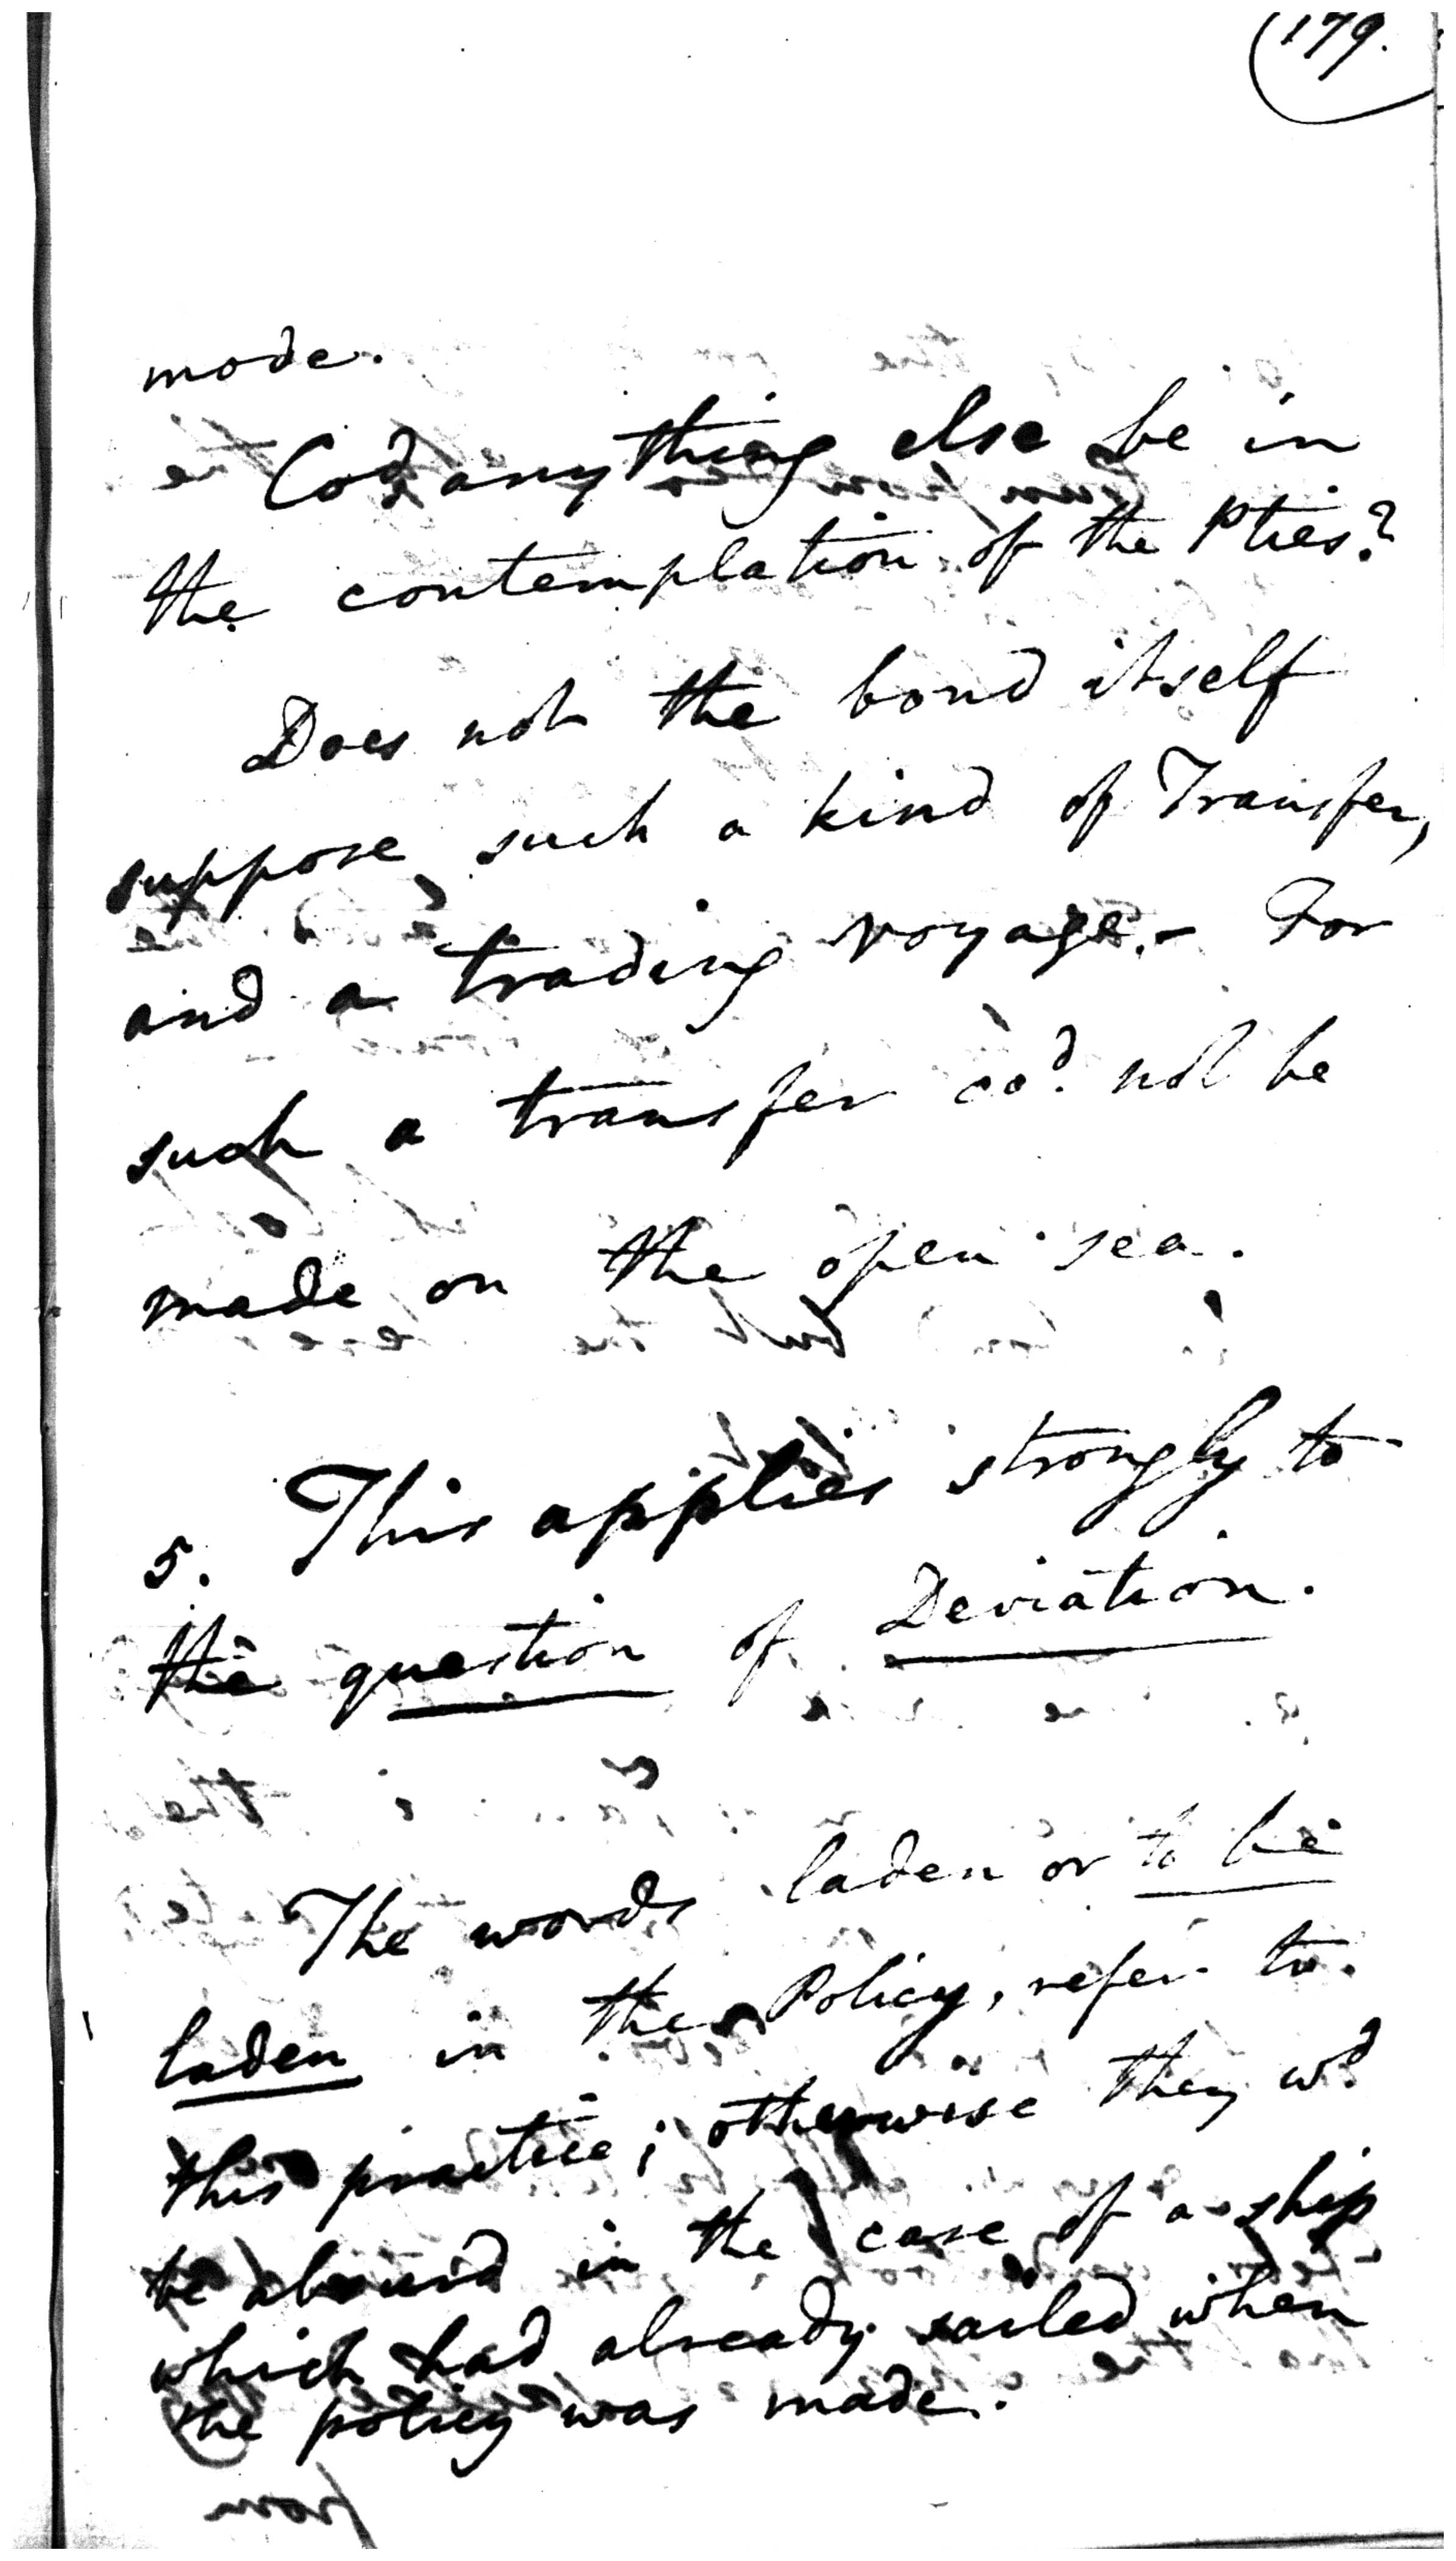 179.
mode.
Cod any thing else be in
the contemplation of the Pties?
Does not the bond itself
suppose such a kind of Transfer,
and a trading voyage.- For
such a transfer cod. not be
made on the open sea.
5. This applies strongly to
the question of Deviation.
The words laden or to be
laden in the Policy, refer to
this practice; otherwise they wd.
be absurd in the case of a ship
which had already sailed when
the policy was made.